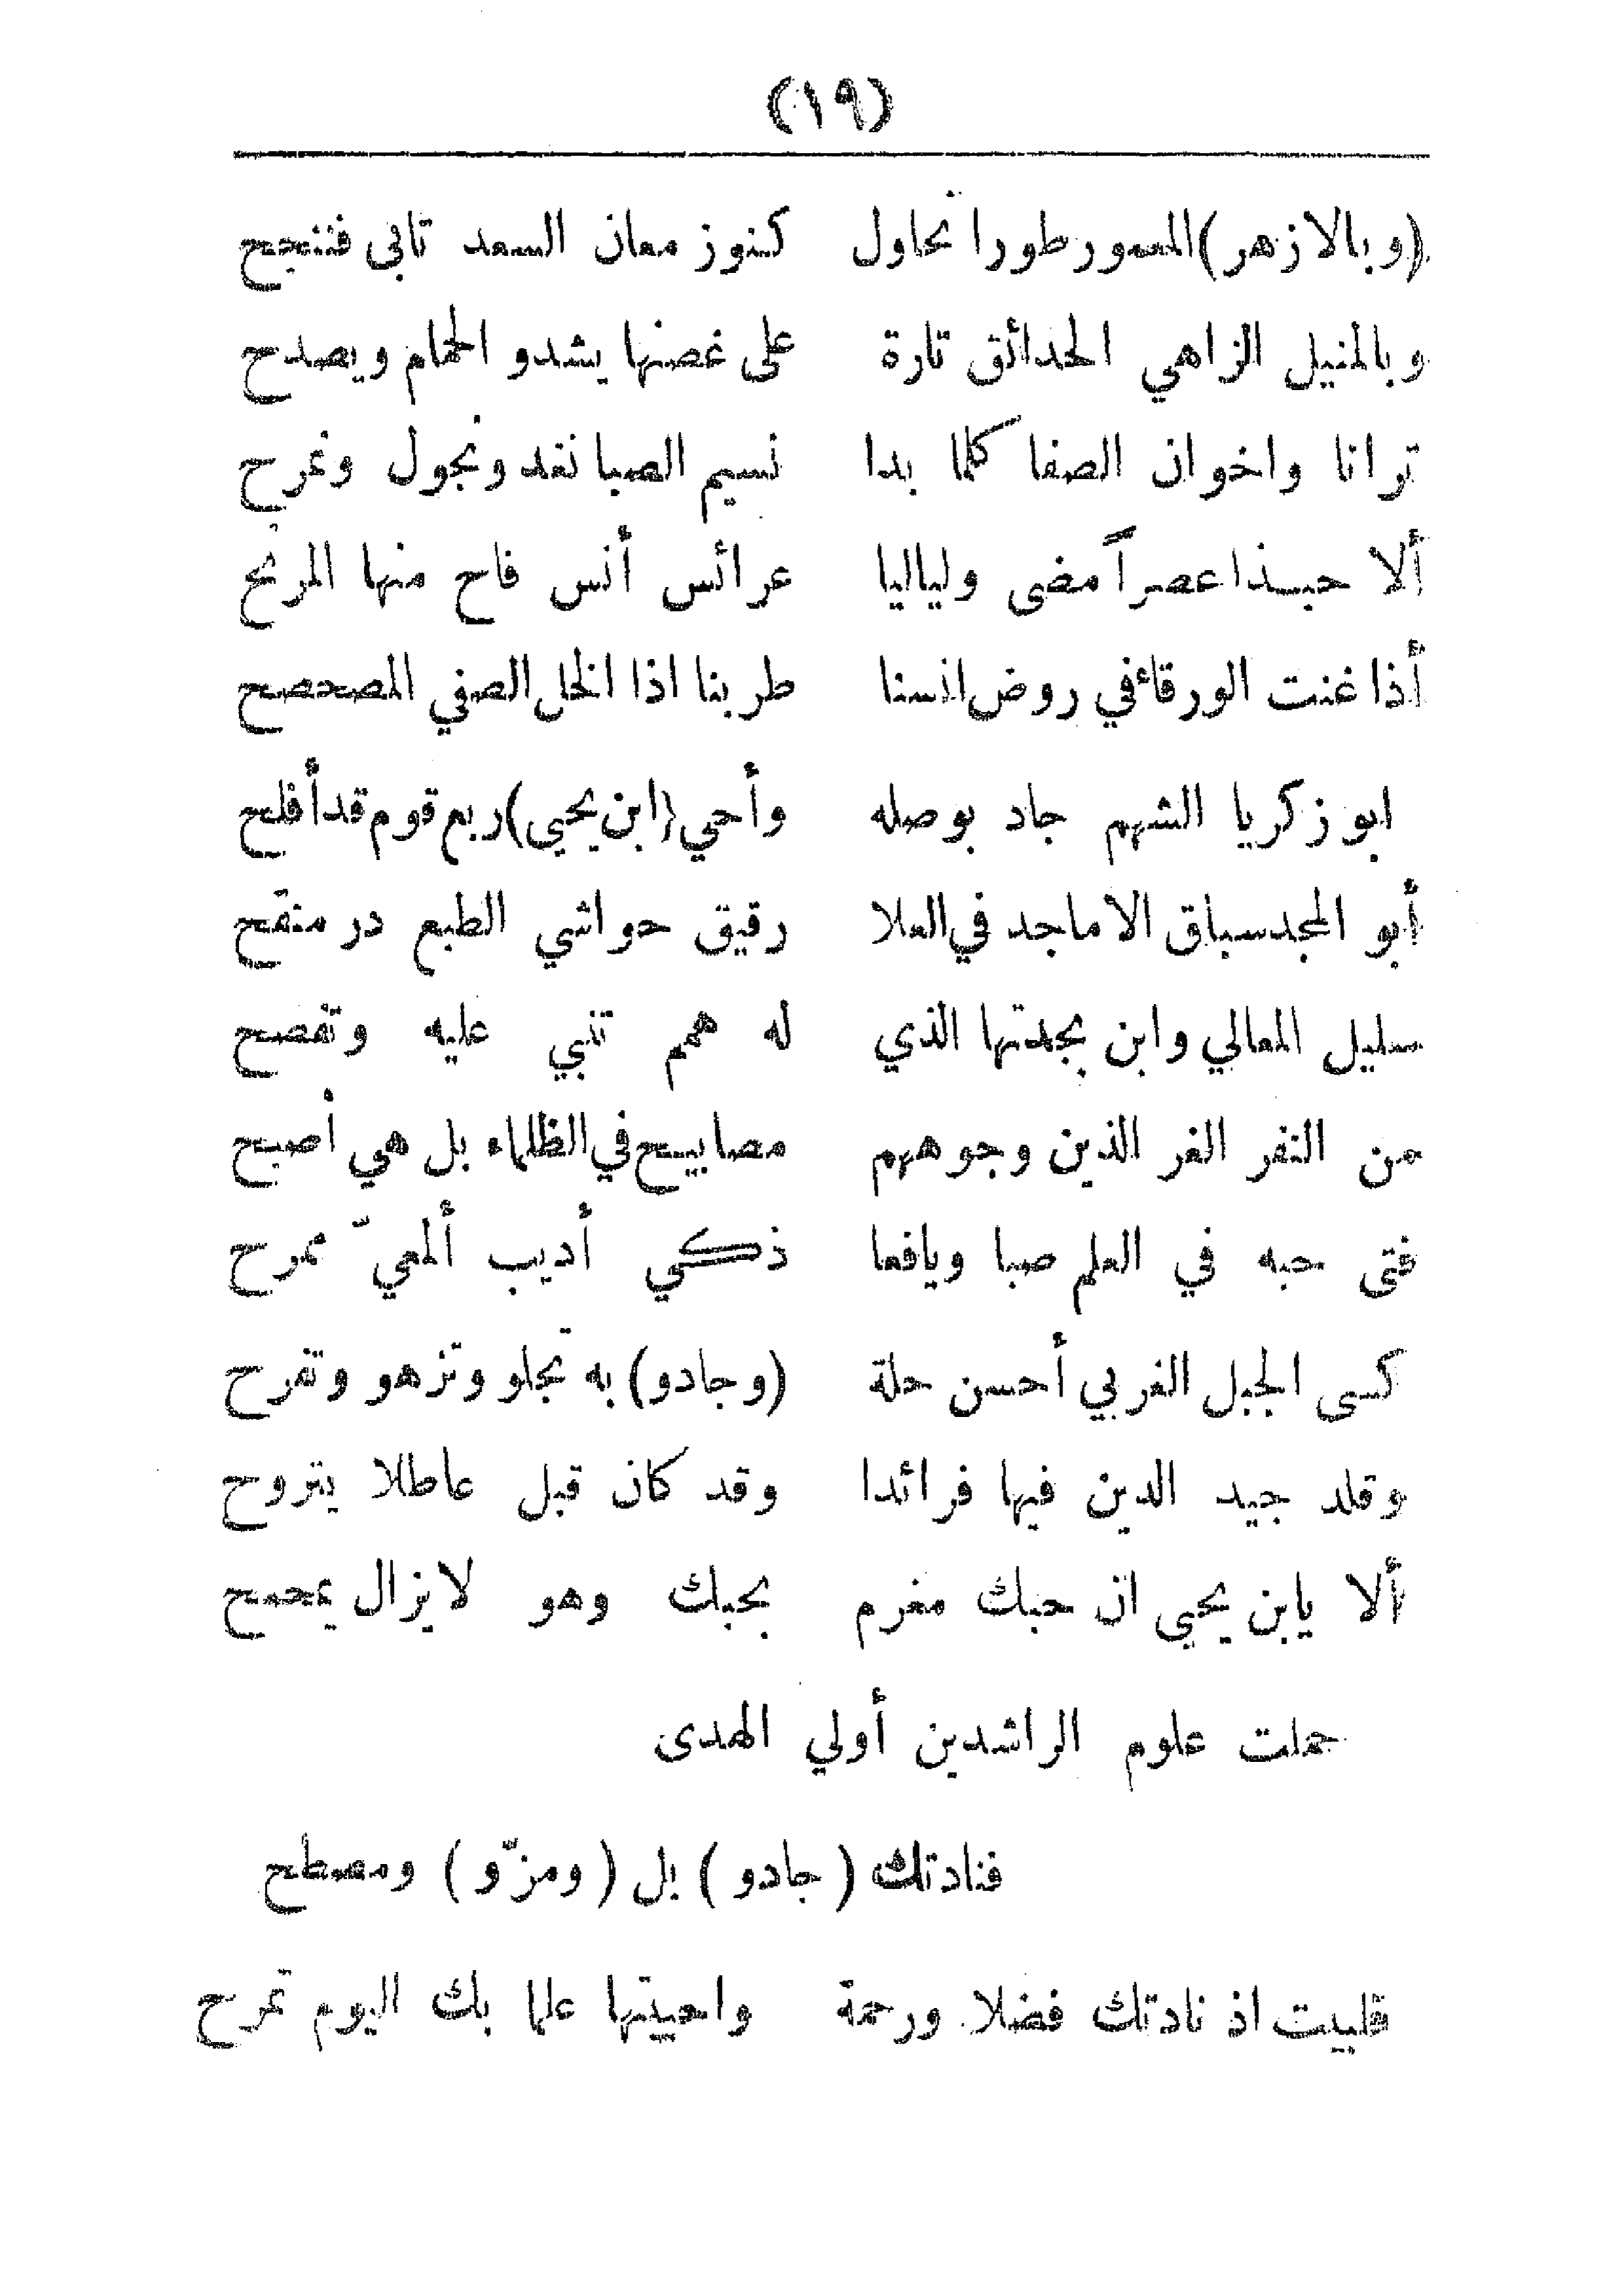 (١٩)
(وبالازهر) المعمور طورا نحاول كنوز معان السعد تابى فتنجح
وبالمنيل الزاهي الحدائق تارة على غصنها يشدو الحمام ويصدح
ترانا واخوان الصفا كلما بدا نسيم الصبا نغد ونجول ونمرح
ألا حبذا عصراً مضى ولياليا عرائس أنس فاح منها المرنح
أذا غنت الورقاء في روض انسنا طربنا اذا الخل الصفي المصحصح
ابو زكريا الشهم جاد بوصله وأحي (ابن يحيى) ربع قوم قد أفلح
أبو المجد سباق الاماجد في العلا رقيق حواشي الطبع در منقح
سليل المعالي وابن بجدتها الذي له همم تنبي عليه وتفصح
من النفر الغر الذين وجوههم مصابيح في الظلماء بل هي أصبح
فتى حبه في العلم صبا ويافعا ذكي أديب ألمعيّ ممرح
كسى الجبل الغربي أحسن حلة (وجادو) به تجلو وتزهو وتفرح
وقلد جيد الدين فيها فرائدا وقد كان قبل عاطلا يتروح
ألا يابن يحيى ان حبك مغرم بحبك وهو لايزال يمحمح
حملت علوم الراشدين أولي الهدى
فنادتك (جادو) بل (ومزّو) ومصطح
فلبيت اذ نادتك فضلا ورحمة واحييتها علما بك اليوم تمرح